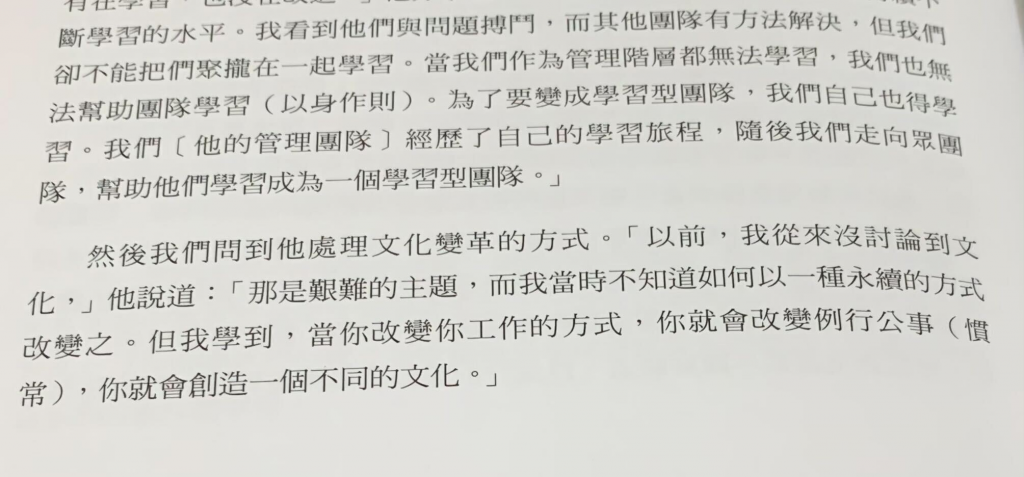 有在學習，也沒在改進。」
斷學習的水平。我看到他們與問題搏鬥，而其他團隊有方法解決，但我們
卻不能把們聚攏在一起學習。當我們作為管理階層都無法學習，我們也無
法幫助團隊學習（以身作則）。為了要變成學習型團隊，我們自己也得學
習。我們〔他的管理團隊〕經歷了自己的學習旅程，隨後我們走向眾團
隊，幫助他們學習成為一個學習型團隊。」
然後我們問到他處理文化變革的方式。「以前，我從來沒討論到文
化，」他說道：「那是艱難的主題，而我當時不知道如何以一種永續的方式
改變之。但我學到，當你改變你工作的方式，你就會改變例行公事（慣
常），你就會創造一個不同的文化。」